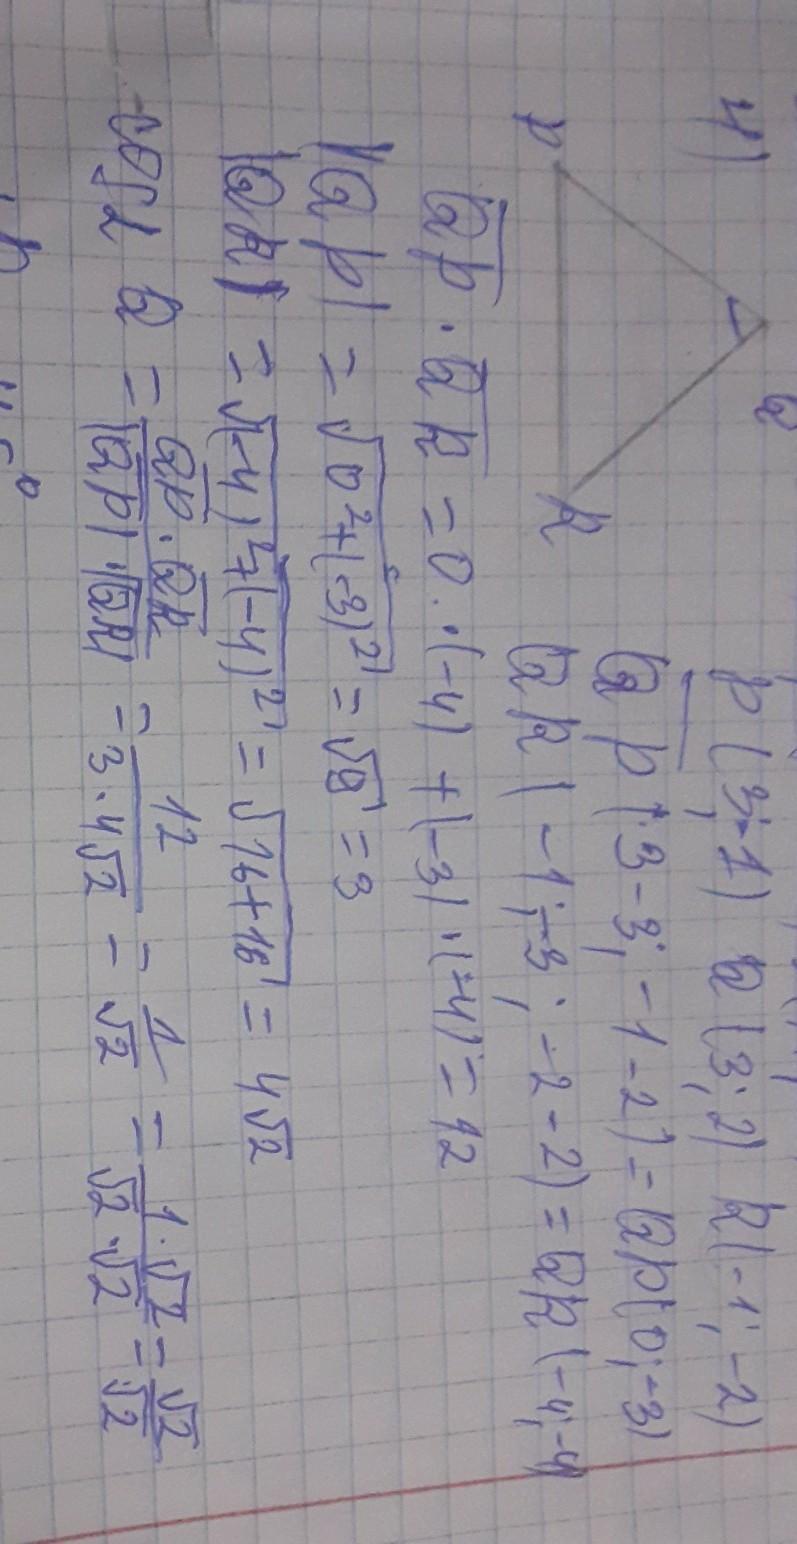 4)
Q
P
R
P(3;-1) Q(3;2) R(-1;-2)
QP(3-3;-1-2)=QP(0;-3)
QR(-1;-3;-2-2)=QR(-4;-4
QP·QR=0·(-4)+(-3)·(-4)=12
|QP|=√0²+(-3)²=√9=3
|QR|=√(-4)²+(-4)²=√16+16=4√2
cos∠Q=QP·QR/|QP|·|QR|=12/3·4√2=1/√2=1·√2/√2·√2=√2/√2